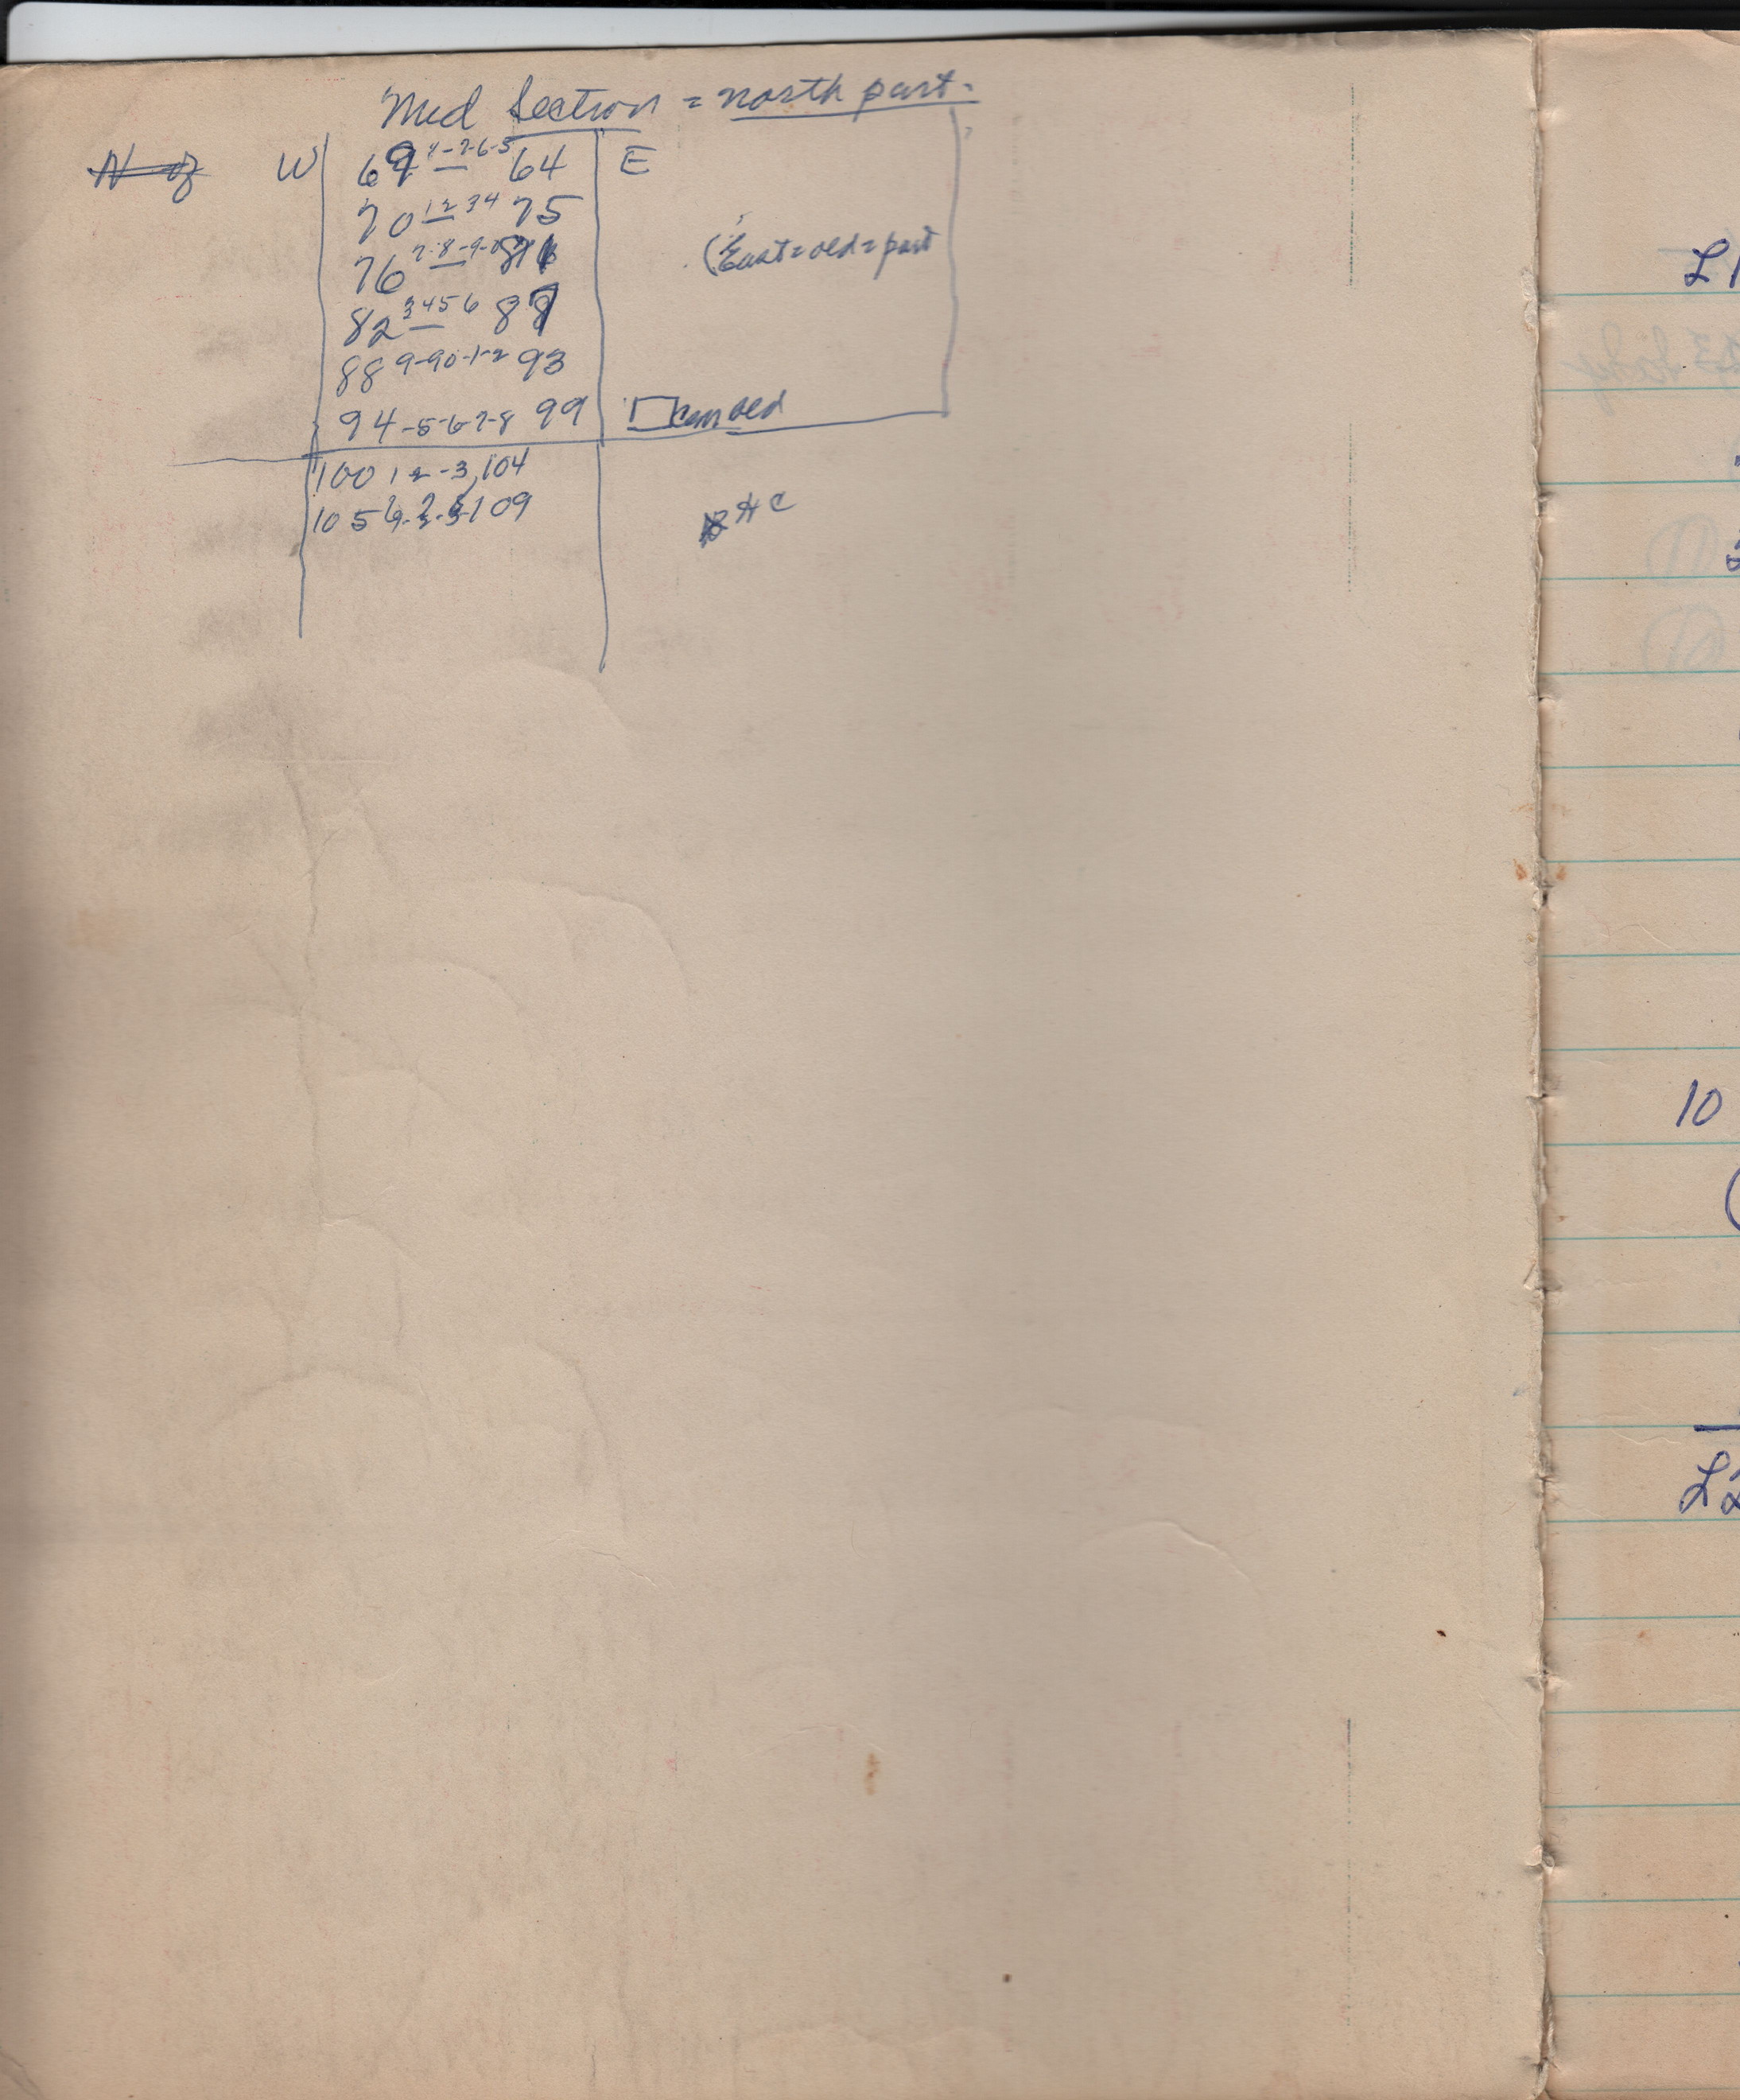 Mid Section = north part.
N of W 69 8-7-6-5 64 E
70 1 2 3 4 75
(East = old = part
76 7-8-9-0 81
82 3 4 5 6 87
88 9-90-1-2 93
94-5-6-7-8 99 Cem old
100 1 2-3, 104
105 6-7-8-109
H C
L1
10
L2